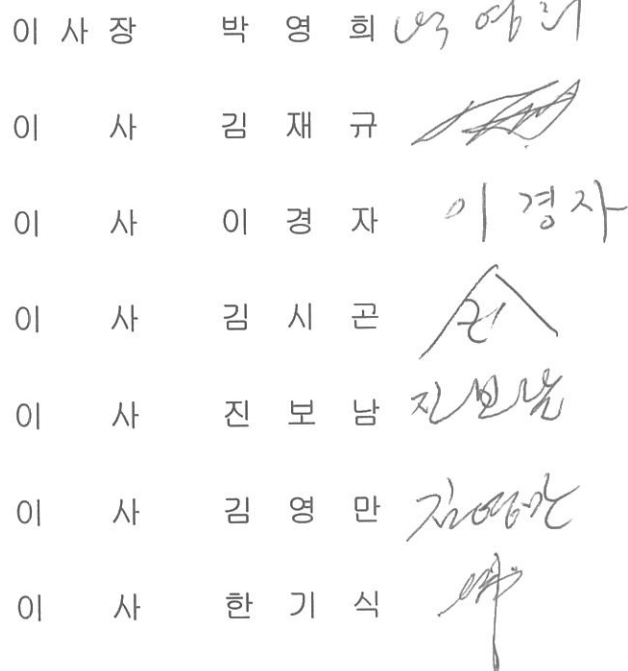 이 사 장 박 영 희 박영희
이 사 김 재 규
이 사 이 경 자 이 경 자
이 사 김 시 곤
이 사 진 보 남 진보남
이 사 김 영 만 김영만
이 사 한 기 식